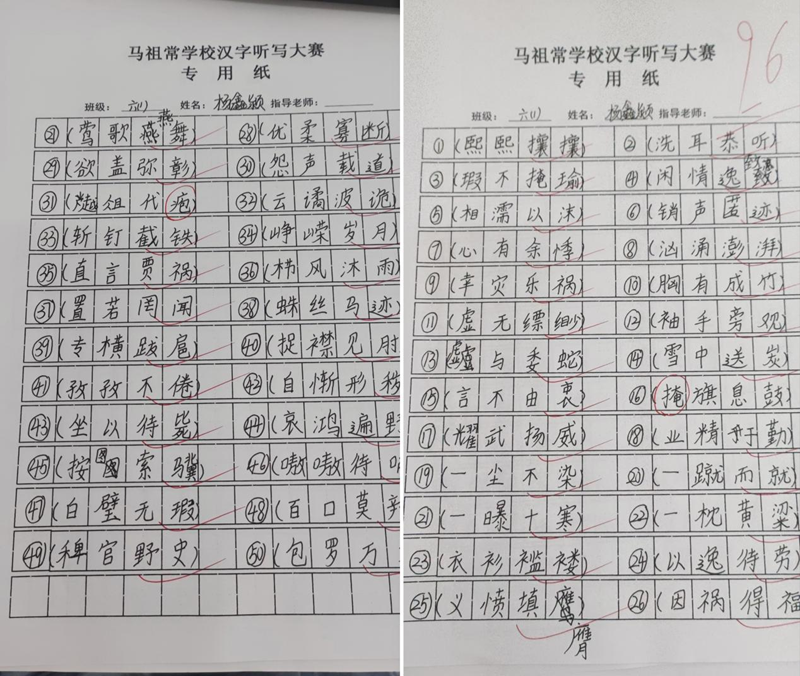 马祖常学校汉字听写大赛
专 用 纸
班级： 六(1) 姓名： 杨鑫颖 指导老师：
㉗(莺歌燕舞) ㉘(优柔寡断)
㉙(欲盖弥彰) ㉚(怨声载道)
㉛(越俎代疱) ㉜(云谲波诡)
㉝(斩钉截铁) ㉞(峥嵘岁月)
㉟(直言贾祸) ㊱(栉风沐雨)
㊲(置若罔闻) ㊳(蛛丝马迹)
㊴(专横跋扈) ㊵(捉襟见肘
㊶(孜孜不倦) ㊷(自惭形
㊸(坐以待毙) ㊹(哀鸿遍野
㊺(按图索骥) ㊻(嗷嗷待
㊼(白璧无瑕) ㊽(百口莫
㊾(稗官野史) ㊿(包罗万
马祖常学校汉字听写大赛
专 用 纸
96
班级： 六(1) 姓名： 杨鑫颖 指导老师：
①(熙熙攘攘) ②(洗耳恭听
③(瑕不掩瑜) ④(闲情逸致
⑤(相濡以沫) ⑥(销声匿迹
⑦(心有余悸) ⑧(汹涌澎湃
⑨(幸灾乐祸) ⑩(胸有成竹
⑪(虚无缥缈) ⑫(袖手旁观
⑬(虚与委蛇) ⑭(雪中送炭
⑮(言不由衷) ⑯(掩旗息鼓
⑰(耀武扬威) ⑱(业精于勤
⑲(一尘不染) ⑳(一蹴而就
㉑(一曝十寒) ㉒(一枕黄粱
㉓(衣衫褴褛) ㉔(以逸待劳
㉕(义愤填鹰) ㉖(因祸得福
膺